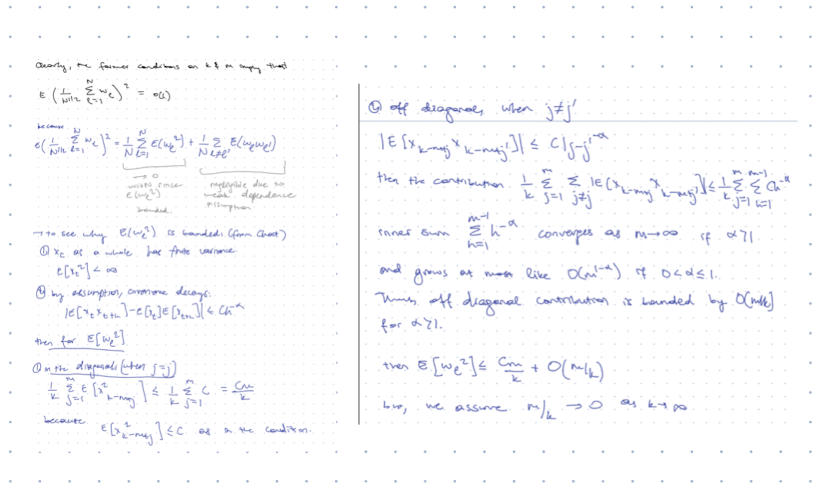 Clearly, the former conditions on k & m imply that
E ( 1/N^{1/2} Σ_{ℓ=1}^{N} w_ℓ )² = o(1)
because
E( 1/N^{1/2} Σ_{ℓ=1}^{N} w_ℓ )² = 1/N Σ_{ℓ=1}^{N} E(w_ℓ²) + 1/N Σ_{ℓ≠ℓ'} E(w_ℓ w_ℓ')
→ 0 negligible due to
E(w_ℓ²) weak dependence
bounded. assumption
→ to see why E(w_ℓ²) is bounded: (from Chat)
① x_t as a whole has finite variance
E[x_t²] < ∞
② by assumption, covariance decays.
|E[x_t x_{t+h}] - E[x_t]E[x_{t+h}]| ≤ Ch^{-α}
then for E[w_ℓ²]
① on the diagonals (when j=j')
1/k Σ_{j=1}^{m} E[x²_{k-m+j}] ≤ 1/k Σ_{j=1}^{m} C = Cm/k
because E[x²_{k-m+j}] ≤ C as in the condition.
② off diagonals, when j≠j'
|E[x_{k-m+j} x_{k-m+j'}]| ≤ C|j-j'|^{-α}
then the contribution: 1/k Σ_{j=1}^{m} Σ_{j≠j'} |E(x_{k-m+j} x_{k-m+j'})| ≤ 1/k Σ_{j=1}^{m} Σ_{h=1}^{m-1} Ch^{-α}
inner sum Σ_{h=1}^{m-1} h^{-α} converges as m→∞ if α>1
and grows at most like O(m^{1-α}) if 0<α≤1.
Thus, off diagonal contribution is bounded by O(m/k)
for α>1.
then E[w_ℓ²] ≤ Cm/k + O(m/k)
but, we assume m/k → 0 as k→∞